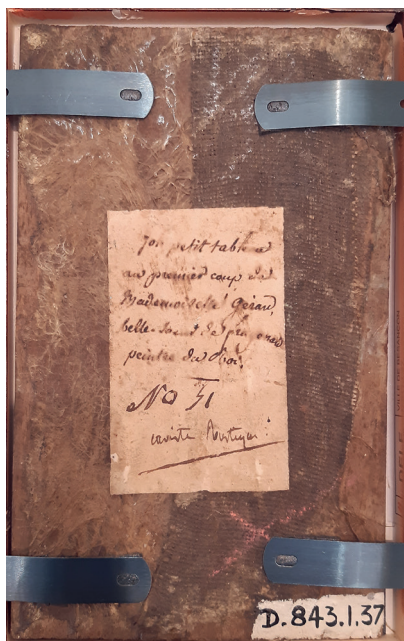 Joli petit tableau
au premier coup de
Mademoiselle Gérard,
belle-soeur de fragonard
peintre du Roi.
No 51
D.843.1.37